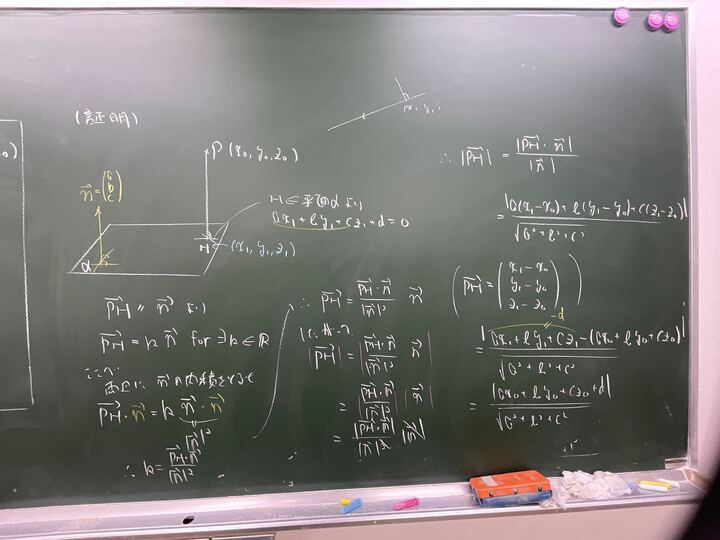 (証明)
P(x₀, y₀, z₀)
n⃗ = (a b c)
H∈平面αより
ax₁+by₁+cz₁+d=0
H (x₁, y₁, z₁)
α
PH⃗ // n⃗ より
PH⃗ = k n⃗ for ∃k∈ℝ
PH⃗・n⃗ = k n⃗・n⃗
|n⃗|²
∴ k = PH⃗・n⃗ / |n⃗|²
∴ PH⃗ = (PH⃗・n⃗ / |n⃗|²) n⃗
|PH⃗| = |(PH⃗・n⃗ / |n⃗|²) n⃗|
= |PH⃗・n⃗ / |n⃗|²| |n⃗|
= (|PH⃗・n⃗| / |n⃗|²) |n⃗|
∴ |PH⃗| = |PH⃗・n⃗| / |n⃗|
= |a(x₁-x₀)+b(y₁-y₀)+c(z₁-z₀)| / √(a²+b²+c²)
(PH⃗ = (x₁-x₀ y₁-y₀ z₁-z₀))
-d
= |ax₁+by₁+cz₁-(ax₀+by₀+cz₀)| / √(a²+b²+c²)
= |ax₀+by₀+cz₀+d| / √(a²+b²+c²)